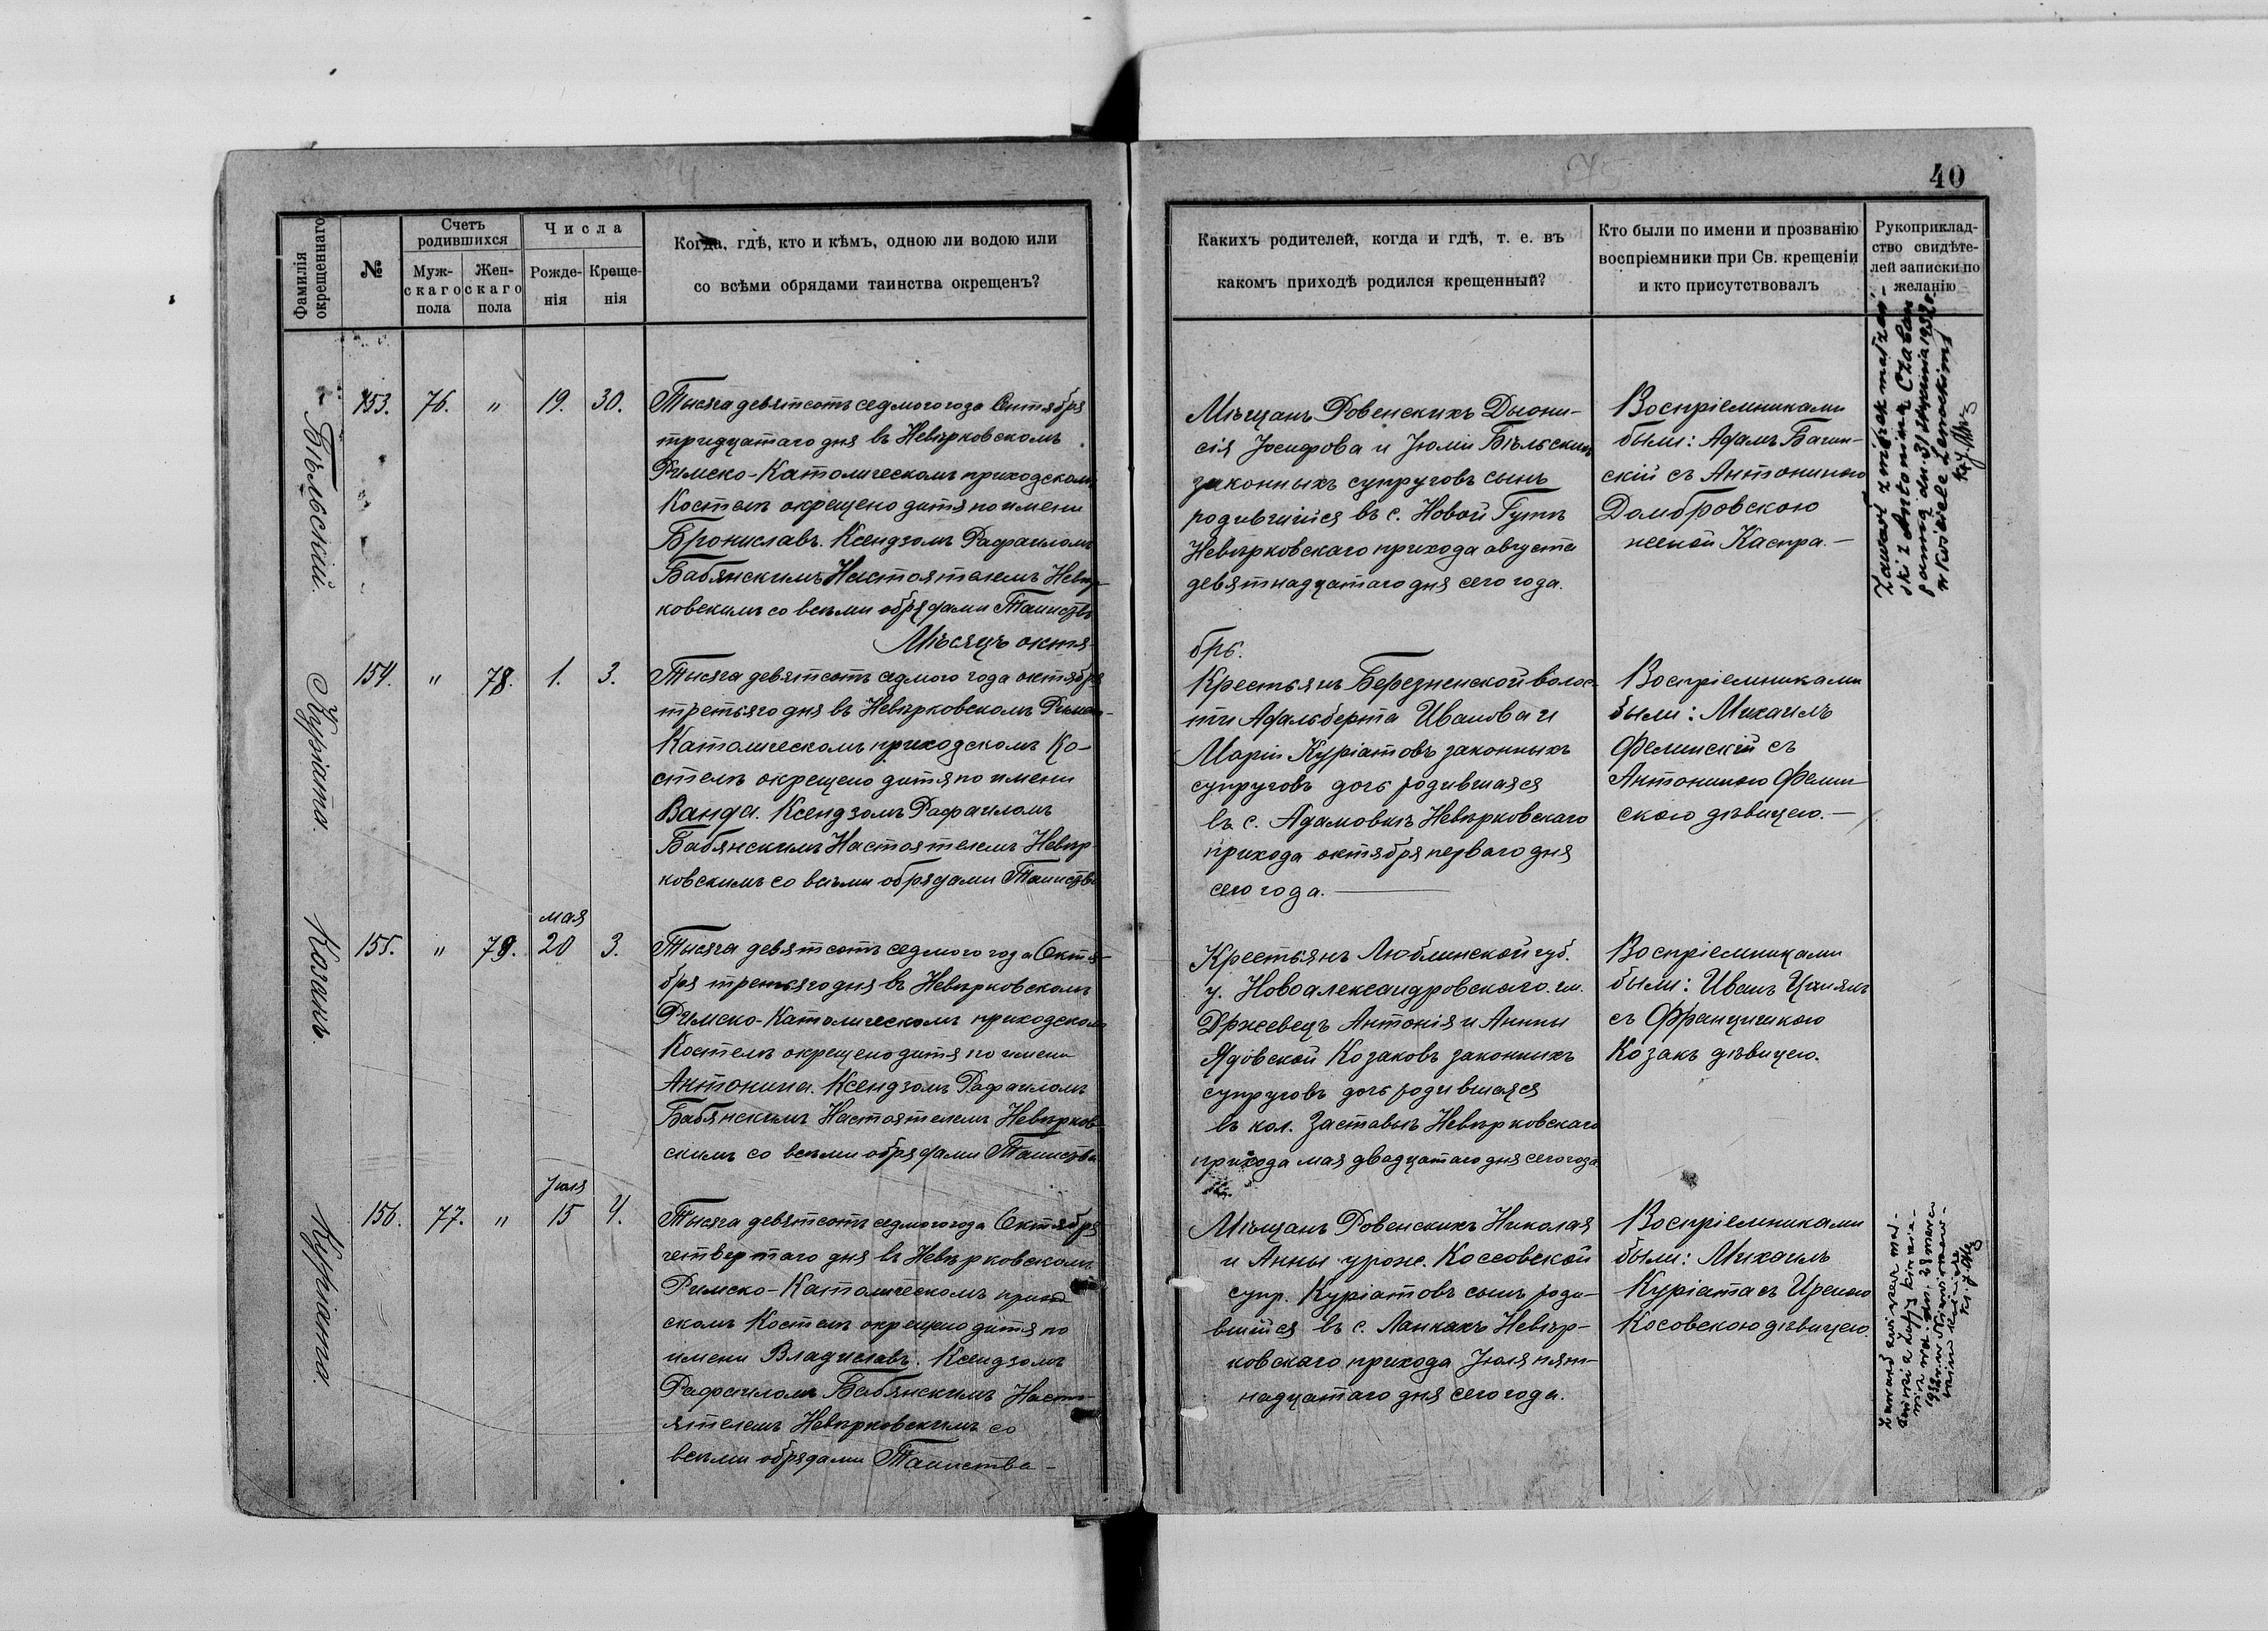 40
Фамилія окрещеннаго
№
Счетъ родившихся
Муж-
скаго
пола
Жен-
скаго
пола
Числа
Рожде-
нія
Креще-
нія
Когда, гдѣ, кто и кѣмъ, одною ли водою или
со всѣми обрядами таинства окрещенъ?
Какихъ родителей, когда и гдѣ, т. е. въ
какомъ приходѣ родился крещенный?
Кто были по имени и прозванію
воспріемники при Св. крещеніи
и кто присутствовалъ
Рукоприклад-
ство свидѣте-
лей записки по
желанію
Бѣльскій.
153. 76. " 19. 30.
Тысяча девятсотъ седмого года Сентября
тридцатаго дня въ Невѣрковскомъ
Римско-Католическомъ приходскомъ
Костелѣ окрещено дитя по имени
Брониславъ. Ксендзомъ Рафаиломъ
Бабянскимъ Настоятелемъ Невѣр-
ковскимъ со всѣми обрядами Таинства
Мѣщанъ Ровенскихъ Діони-
сія Іосифова и Юліи Бѣльскихъ
законныхъ супруговъ сынъ
родившійся въ с. Новой Гутѣ
Невѣрковскаго прихода августа
девятнадцатаго дня сего года.
Воспріемниками
были: Адамъ Багин-
скій съ Антониною
Домбровскою
женой Каспра.—
Zawarł związek małżeń-
ski z Antoniną Czaban
panną dn. 31 stycznia 1932 r.
w kościele
Мѣсяцъ октя-
брь.
Куріата.
154. " 78. 1. 3.
Тысяча девятсотъ седмого года октября
третьяго дня въ Невѣрковскомъ Римско-
Католическомъ приходскомъ Ко-
стелѣ окрещено дитя по имени
Ванда. Ксендзомъ Рафаиломъ
Бабянскимъ Настоятелемъ Невѣр-
ковскимъ со всѣми обрядами Таинства
Крестьянъ Березненской волос-
ти Адальберта Иванова и
Маріи Куріатовъ законныхъ
супруговъ дочь родившаяся
въ с. Адамовкѣ Невѣрковскаго
прихода октября перваго дня
сего года.
Воспріемниками
были: Михаилъ
Фелинскій съ
Антониною Фелин-
скою дѣвицею.—
Козакъ
155. " 79. мая 20 3.
Тысяча девятсотъ седмого года Октя-
бря третьяго дня въ Невѣрковскомъ
Римско-Католическомъ приходскомъ
Костелѣ окрещено дитя по имени
Антонина. Ксендзомъ Рафаиломъ
Бабянскимъ Настоятелемъ Невѣрков-
скимъ со всѣми обрядами Таинства
Крестьянъ Люблинской губ.
у. Новоалександровскаго гм.
Држевецъ Антонія и Анны
Ядовской Козаковъ законныхъ
супруговъ дочь родившаяся
въ кол. Заставьѣ Невѣрковскаго
прихода мая двадцатаго дня сего года
Воспріемниками
были: Иванъ
съ Францишкою
Козакъ дѣвицею.
Куріата.
156. 77. " Іюля 15 4.
Тысяча девятсотъ седмого года Октября
четвертаго дня въ Невѣрковскомъ
Римско-Католическомъ приход-
скомъ Костелѣ окрещено дитя по
имени Владиславъ. Ксендзомъ
Рафаиломъ Бабянскимъ Насто-
ятелемъ Невѣрковскимъ со
всѣми обрядами Таинства—
Мѣщанъ Ровенскихъ Николая
и Анны урож. Коссовской
супр. Куріатовъ сынъ роди-
вшійся въ с. Ланкахъ Невѣр-
ковскаго прихода Іюля пят-
надцатаго дня сего года.
Воспріемниками
были: Михаилъ
Куріата съ Иреною
Косовскою дѣвицею.
Zawarł związek mał-
żeński z